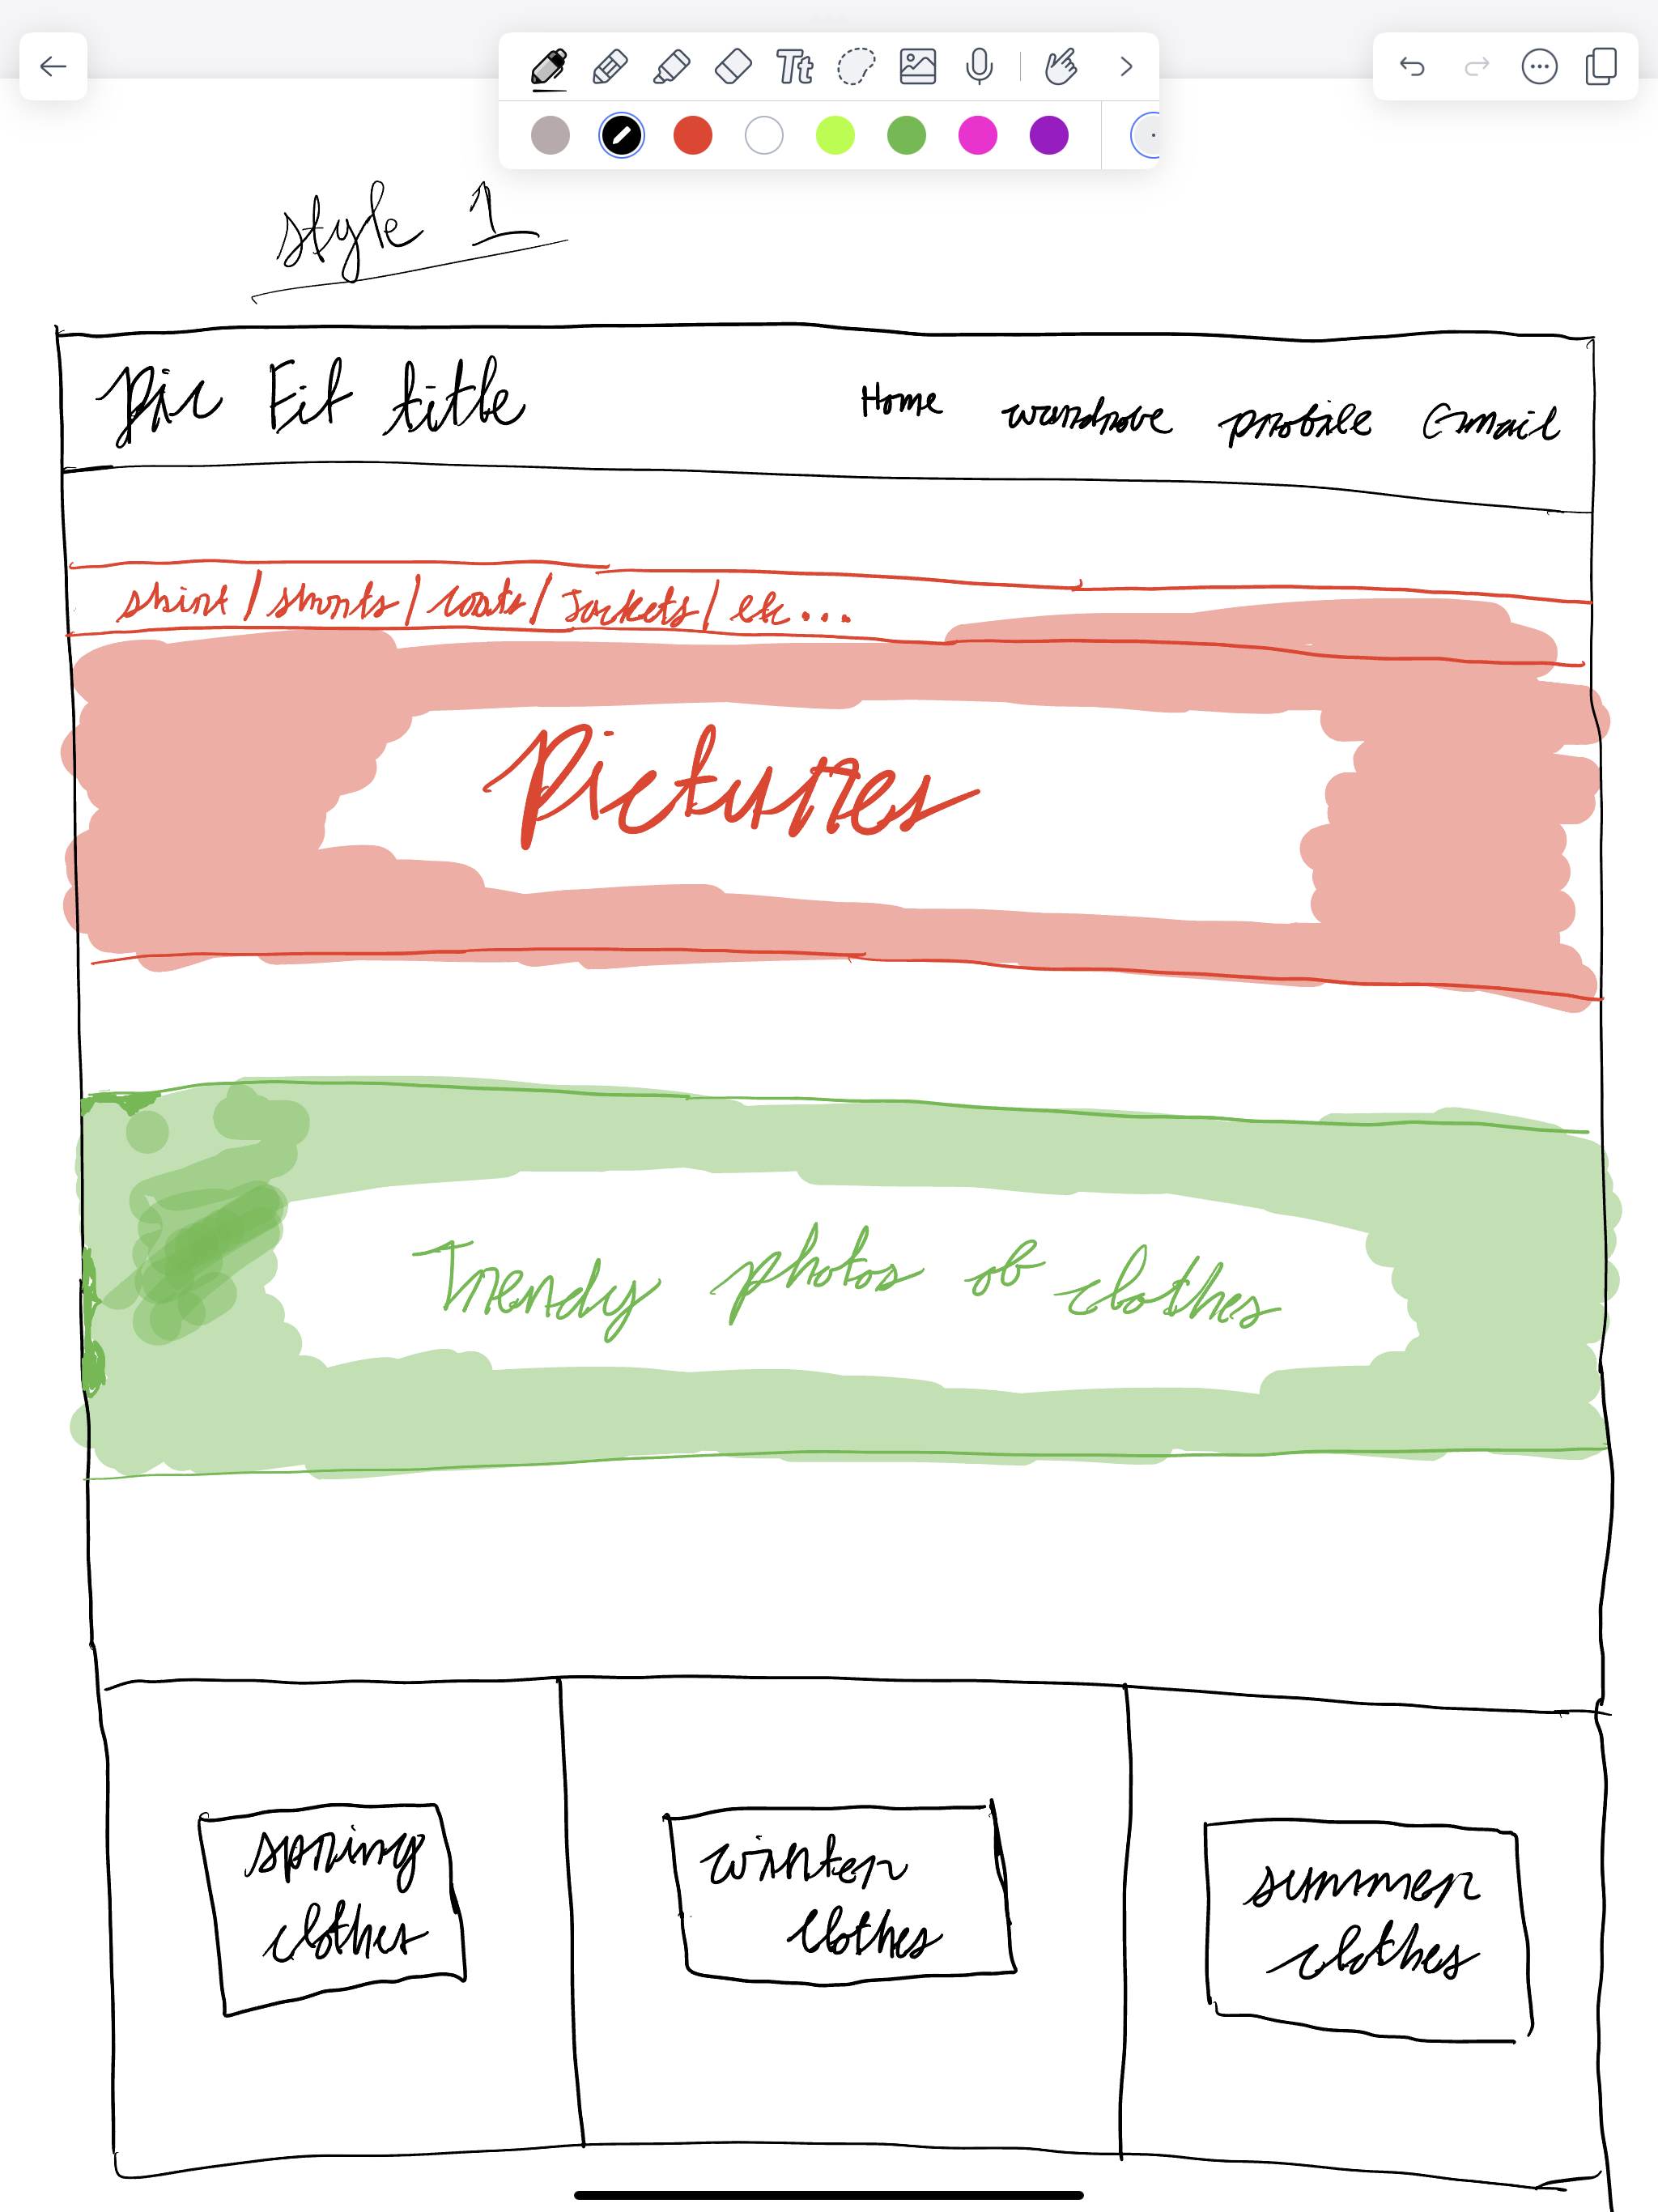 Tt
style 1
Pic Fit title
Home wardrobe profile Email
shirt / shorts / coats / Jackets / etc...
Pictures
Trendy photos of clothes
spring
clothes
winter
clothes
summer
clothes